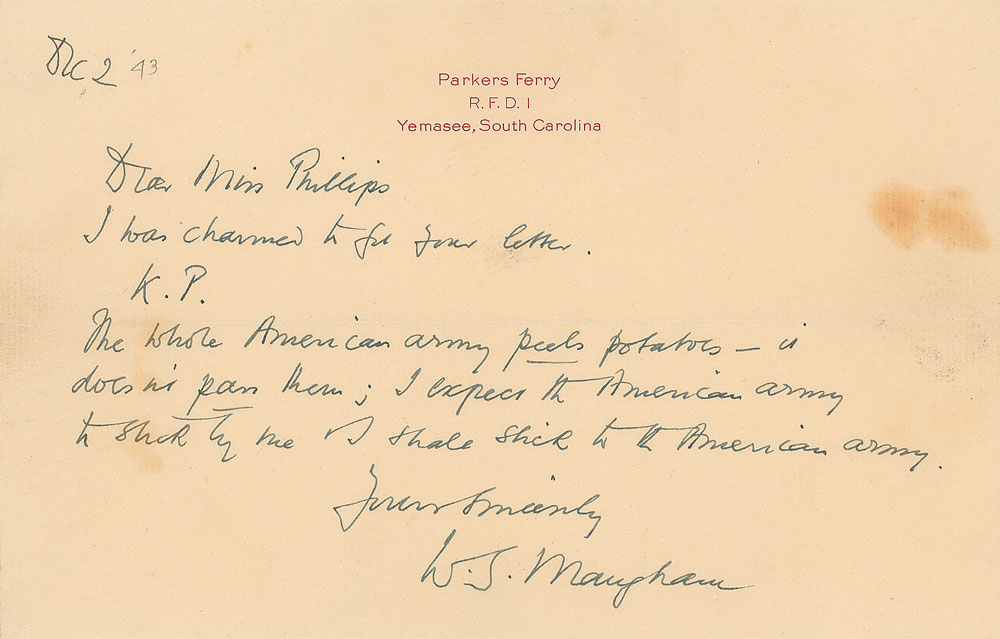 Dec 2 '43
Parkers Ferry
R. F. D. 1
Yemasee, South Carolina
Dear Miss Phillips
I was charmed to get your letter.
K. P.
The whole American army peels potatoes – it
does not pare them; I expect the American army
to stick by me & I shall stick to the American army.
Yours Sincerely
W. S. Maugham